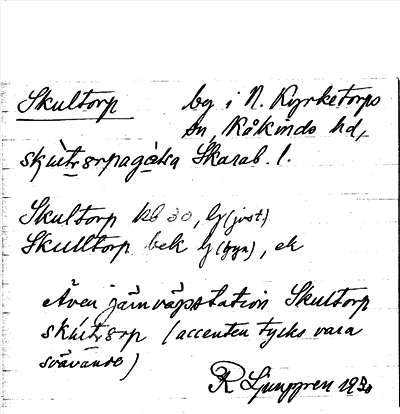 Skultorp by i N. Kyrketorps
sn, Kåkinds hd,
Skarab. l.
Skultorp kb 30, G (just)
Skulltorp bek G (gyn), ek
Även järnvägsstation Skultorp
(accenten tycks vara
svävande)
R Ljunggren 1930